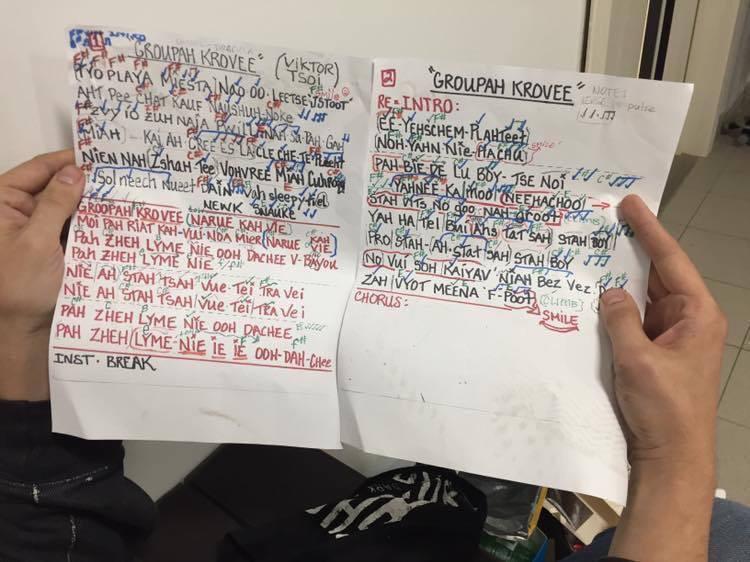 1
"GROUPAH KROVEE"
(VIKTOR TSOI)
F# F# F# F#
TYO PLAYA MESTA NAO OO. LEETSE TSTOOT
Smile
AHT Pee CHAT KALE NASHUH NOKE
ZVYO ZUH NAJA
MIAH) - KAI AH CREE ES LA CLE CHE TE
NIEN NAH (Zshah Tee) VOHVREE MIAH
Sol neech nueet DAIN Vah sleepy tiel
NENK SNAUKE
GROOPAH KROVEE (NARUE KAH VIE)
MOI PAH RIAT KAH-VUI-NOA MIER (NARUE KAH VIE
PAH ZHEH LYME NIE OOH DACHEE V-BAYOU
PAH ZHEH LYME NIE F#
NIE AH STAH TSAH VUE-TEI TRA VEI
NIE AH STAH TSAH VUE TEI TRA VEI
PAH ZHEH LYME NIE OOH DACHEE
PAH ZHEH LYME-NIE IE IE OOH-DAH-CHEE
INST. BREAK
2
"GROUPAH KROVEE"
NOTE:
pulse
RE=INTRO:
(EE TEHSCHEM-PLAHTEET)
(NOH-YAHN NIE-HACHU)
smile
PAH-BIE DE LU BOY-TSE NOI
YAHNEE KAI MOOI (NEEHACHOO)
STAH VITS NO GOO-NAH GROOT
YAH HA TEI BUI AHS TAT SAH STAH BOY
PRO STAH-(AH STAT SAH STAH BOY
NO VUI SOH KAIYAV NIAH BEZ VEZ
ZAH VYOT MEENA F-POOT
CHORUS:
SMILE